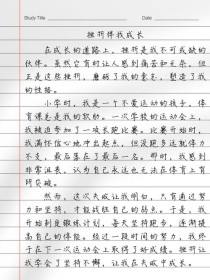 Study Title
Date
挫折伴我成长
在成长的道路上，挫折是我不可或缺的
伙伴。虽然它有时让人感到痛苦和无奈，但
正是这些挫折，磨砺了我的意志，塑造了我
的性格。
小学时，我是一个不爱运动的孩子，体
育课总是我的软肋。在一次学校的运动会上，
我被迫参加了一项长跑比赛。比赛开始时，
我满怀信心地冲出起点，但没跑多远就体力
不支，最后落在了最后一名。那时，我感到
非常沮丧，认为自己永远也无法在体育上有
所突破。
然而，这次失败让我明白，只有通过努
力和坚持，才能战胜自己的弱点。于是，我
开始制定锻炼计划，每天坚持跑步，逐渐提
高自己的体能。经过一段时间的努力，我终
于在下一次运动会上取得了好成绩。挫折让
我学会了坚持不懈，让我在失败中成长。